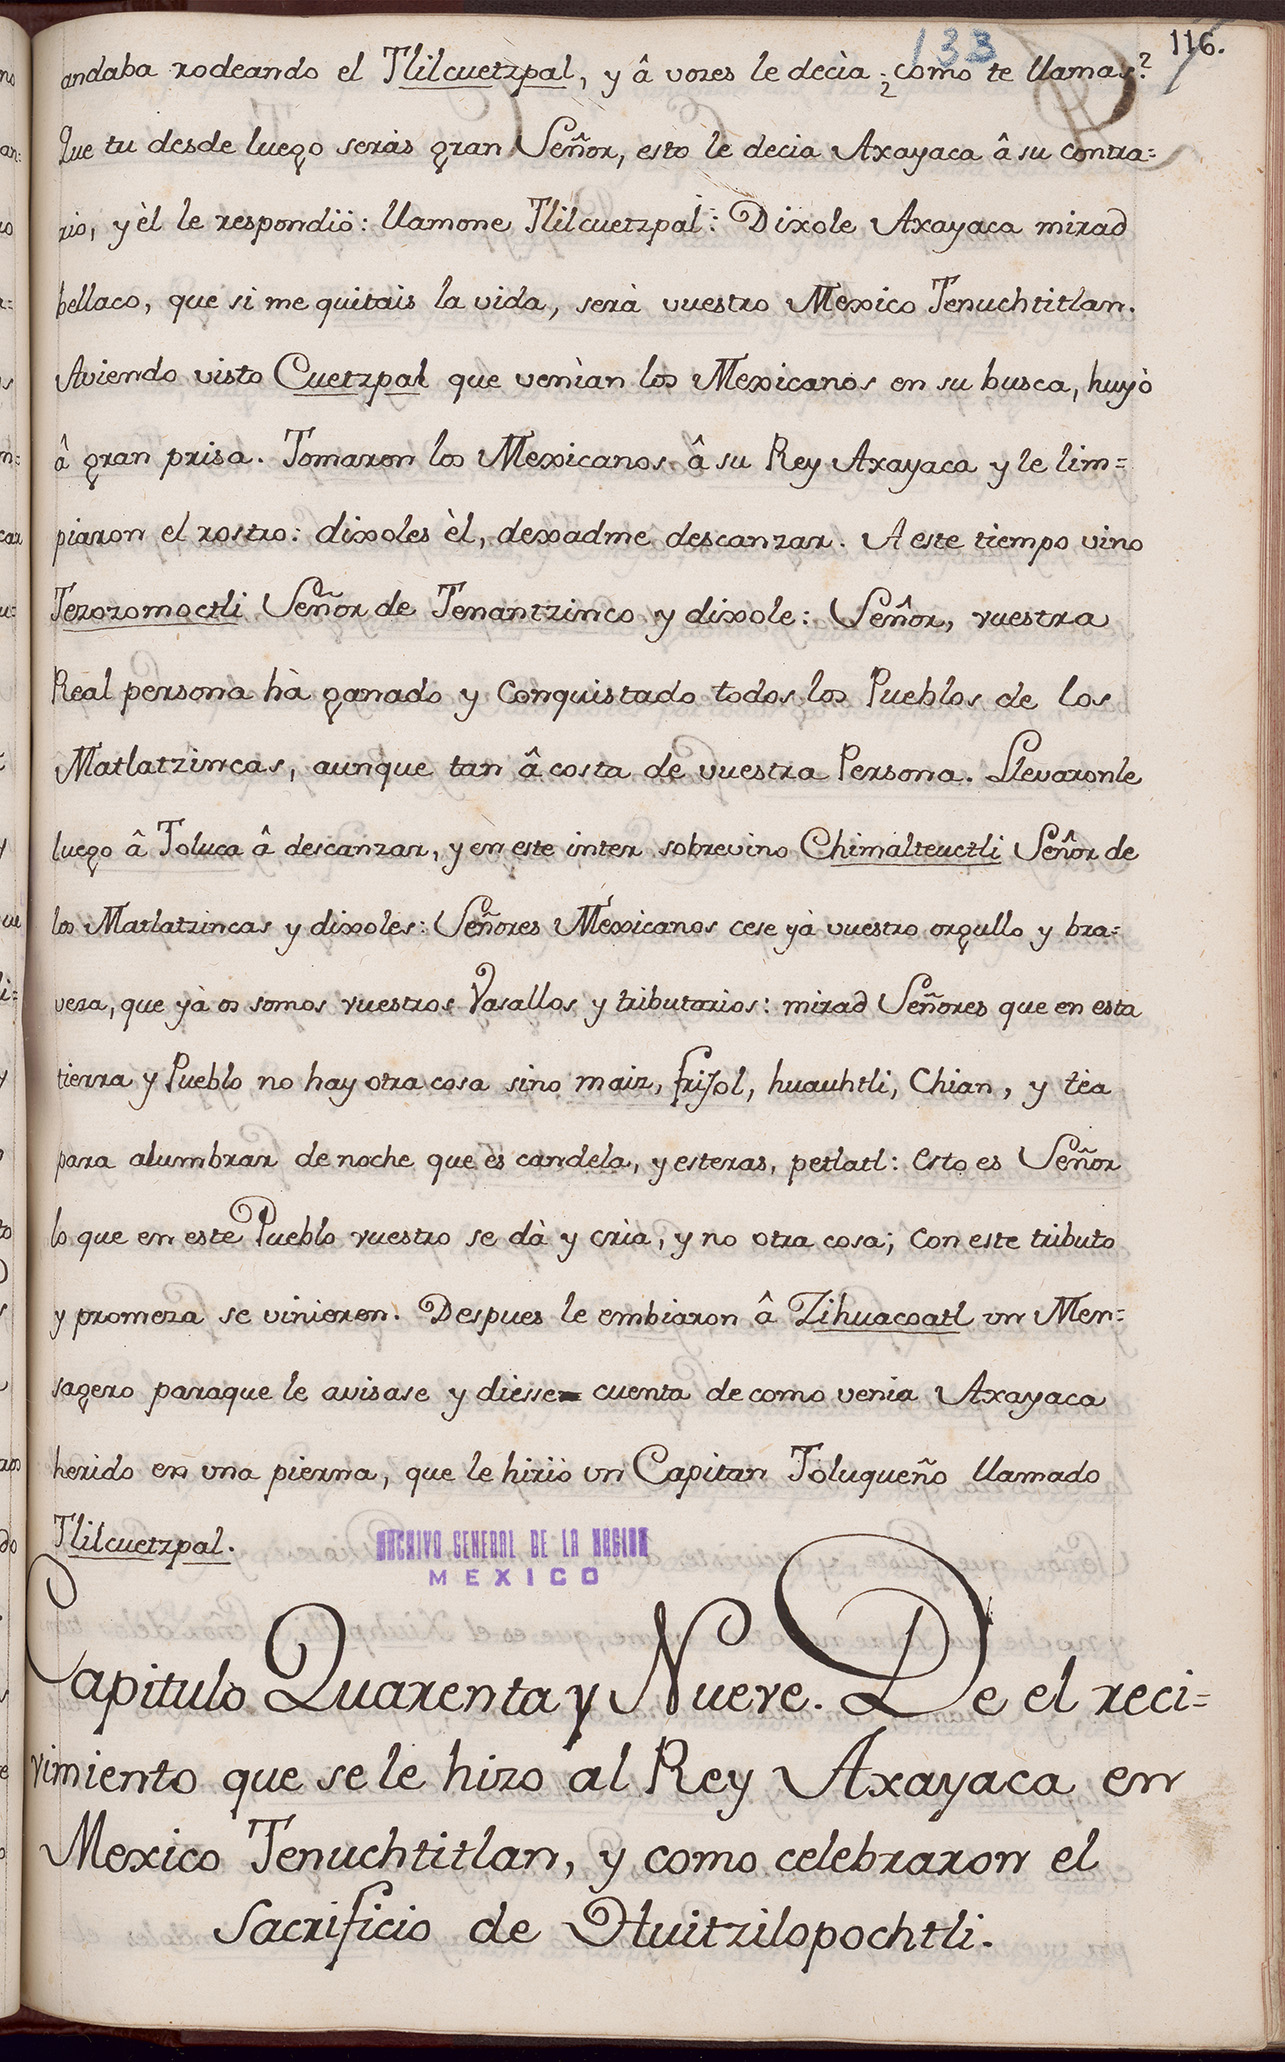 133 116.
andaba rodeando el Tlilcuetzpal, y â vozes le decìa ¿como te llamas?
Que tu desde luego seràs gran Señor, esto le decia Axayaca â su contra=
rio, y èl le respondiò: llamone Tlilcuetzpal: Dixole Axayaca mirad
bellaco, que si me quitais la vida, serà vuestro Mexico Tenuchtitlan.
Aviendo visto Cuetzpal que venìan los Mexicanos en su busca, huyò
â gran prisa. Tomaron los Mexicanos â su Rey Axayaca y le lim=
piaron el rostro: dixoles èl, dexadme descanzar. A este tiempo vino
Tezozomoctli Señor de Tenantzinco y dixole: Señor, vuestra
Real persona hà ganado y conquistado todos los Pueblos de los
Matlatzincas, aunque tan â costa de vuestra Persona. Llevaronle
luego â Toluca â descanzar, y en este inter sobrevino Chimalteuctli Señor de
los Matlatzincas y dixoles: Señores Mexicanos cese yà vuestro orgullo y bra=
veza, que yà os somos vuestros Vasallos y tributarios: mirad Señores que en esta
tierra y Pueblo no hay otra cosa sino maiz, frijol, huauhtli, Chian, y tèa
para alumbrar de noche que es candela, y esteras, petlatl: esto es Señor
lo que en este Pueblo vuestro se dà y crìa, y no otra cosa; con este tributo
y promeza se vinieron. Despues le embiaron â Zihuacoatl un Men=
sagero paraque le avisase y diesse cuenta de como venia Axayaca
herido en una pierna, que le hiriò un Capitan Toluqueño llamado
Tlilcuetzpal.
ARCHIVO GENERAL DE LA NACION
MEXICO
Capitulo Quarenta y Nueve. De el reci=
vimiento que se le hizo al Rey Axayaca en
Mexico Tenuchtitlan, y como celebraron el
Sacrificio de Huitzilopochtli.